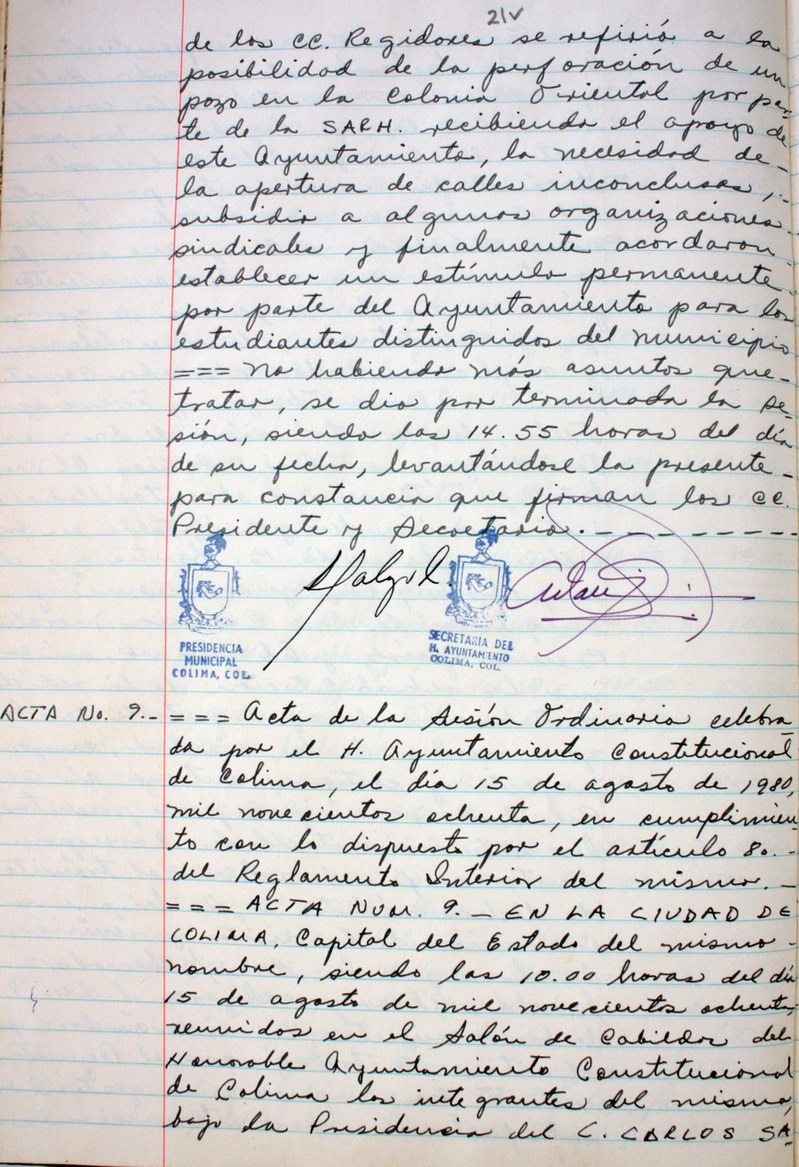 21v
de los CC. Regidores se refirió a la
posibilidad de la perforación de un
pozo en la Colonia Oriental por par-
te de la SARH. recibiendo el apoyo de
este Ayuntamiento, la necesidad de-
la apertura de calles inconclusas,-
subsidio a algunas organizaciones
sindicales y finalmente acordaron
establecer un estímulo permanente
por parte del Ayuntamiento para los
estudiantes distinguidos del municipio
=== No habiendo más asuntos que-
tratar, se dio por terminada la se-
sión, siendo las 14.55 horas del día
de su fecha, levantándose la presente-
para constancia que firman los CC.
Presidente y Secretario. - - - - - - - -
PRESIDENCIA
MUNICIPAL
COLIMA, COL.
SECRETARIA DEL
H. AYUNTAMIENTO
COLIMA, COL.
ACTA No. 9.- === Acta de la Sesión Ordinaria celebra
da por el H. Ayuntamiento Constitucional
de Colima, el día 15 de agosto de 1980,
mil novecientos ochenta, en cumplimien
to con lo dispuesto por el artículo 8o.-
del Reglamento Interior del mismo.-
=== ACTA NUM. 9.- EN LA CIUDAD DE
COLIMA, Capital del Estado del mismo-
nombre, siendo las 10.00 horas del día
15 de agosto de mil novecientos ochenta,
reunidos en el Salón de Cabildos del
Honorable Ayuntamiento Constitucional
de Colima los integrantes del mismo,
bajo la Presidencia del C. CARLOS SÁ-